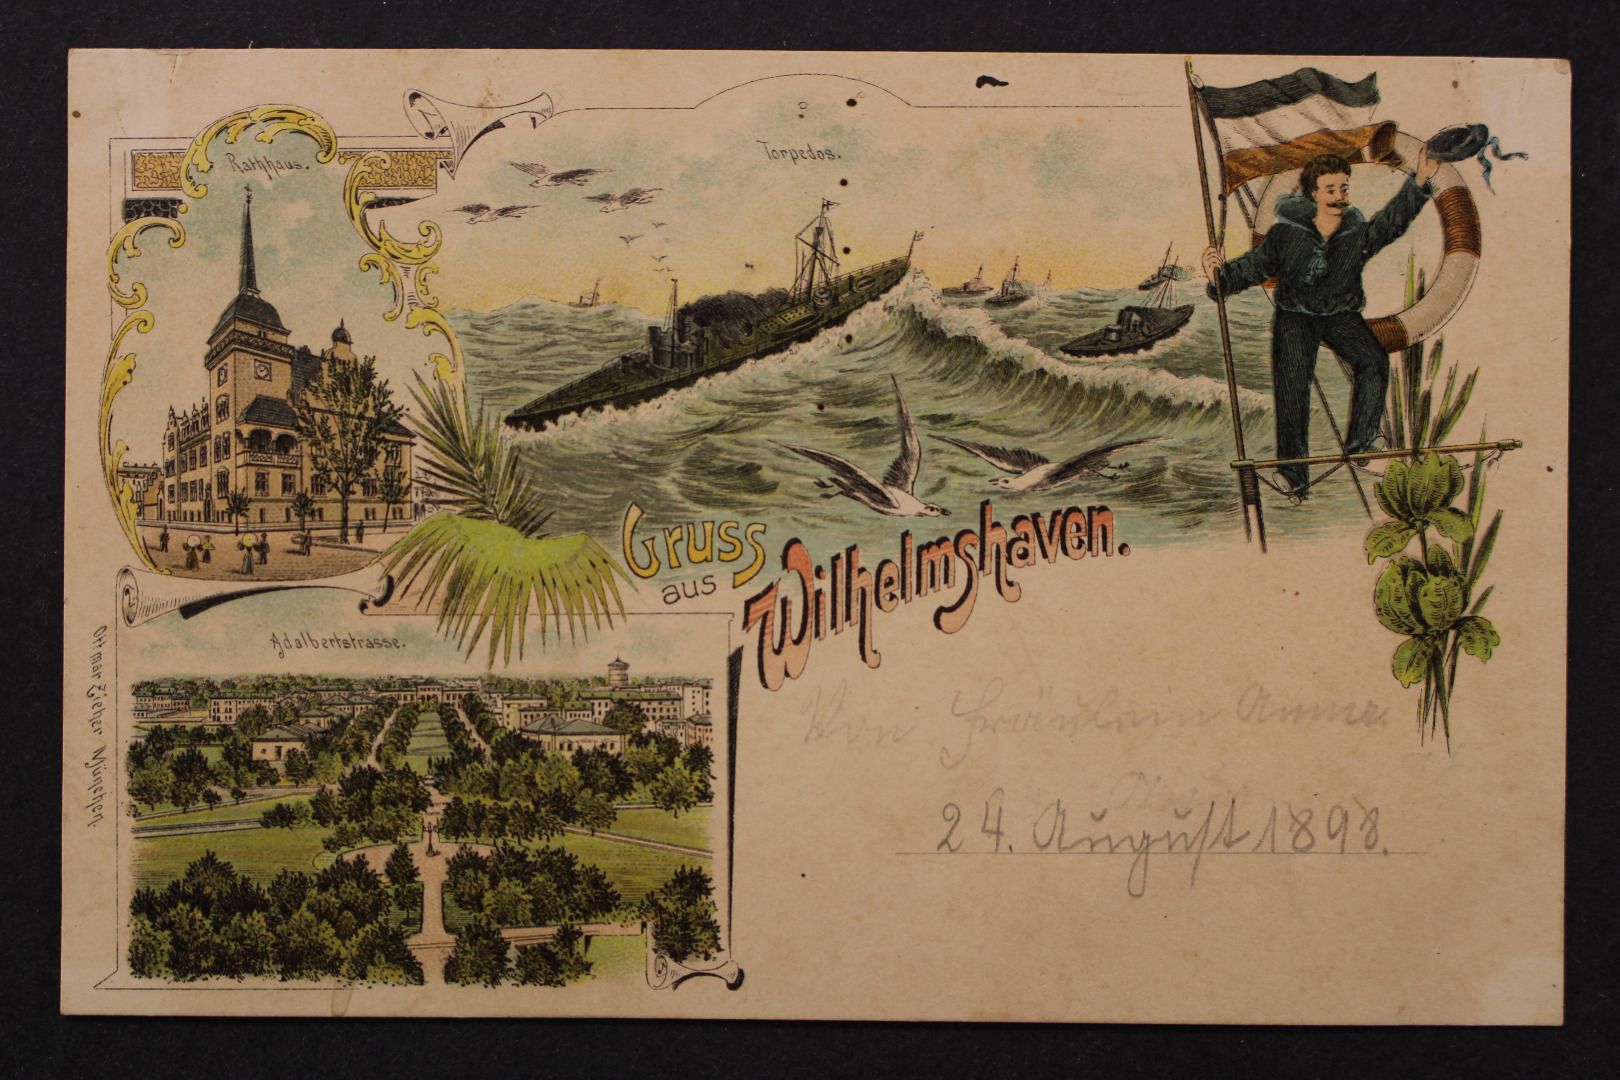 Rathhaus.
Torpedos.
Gruss
aus
Wilhelmshaven.
Adalbertstrasse.
Ottmar Zieher München.
Von Fräulein
24. August 1898.